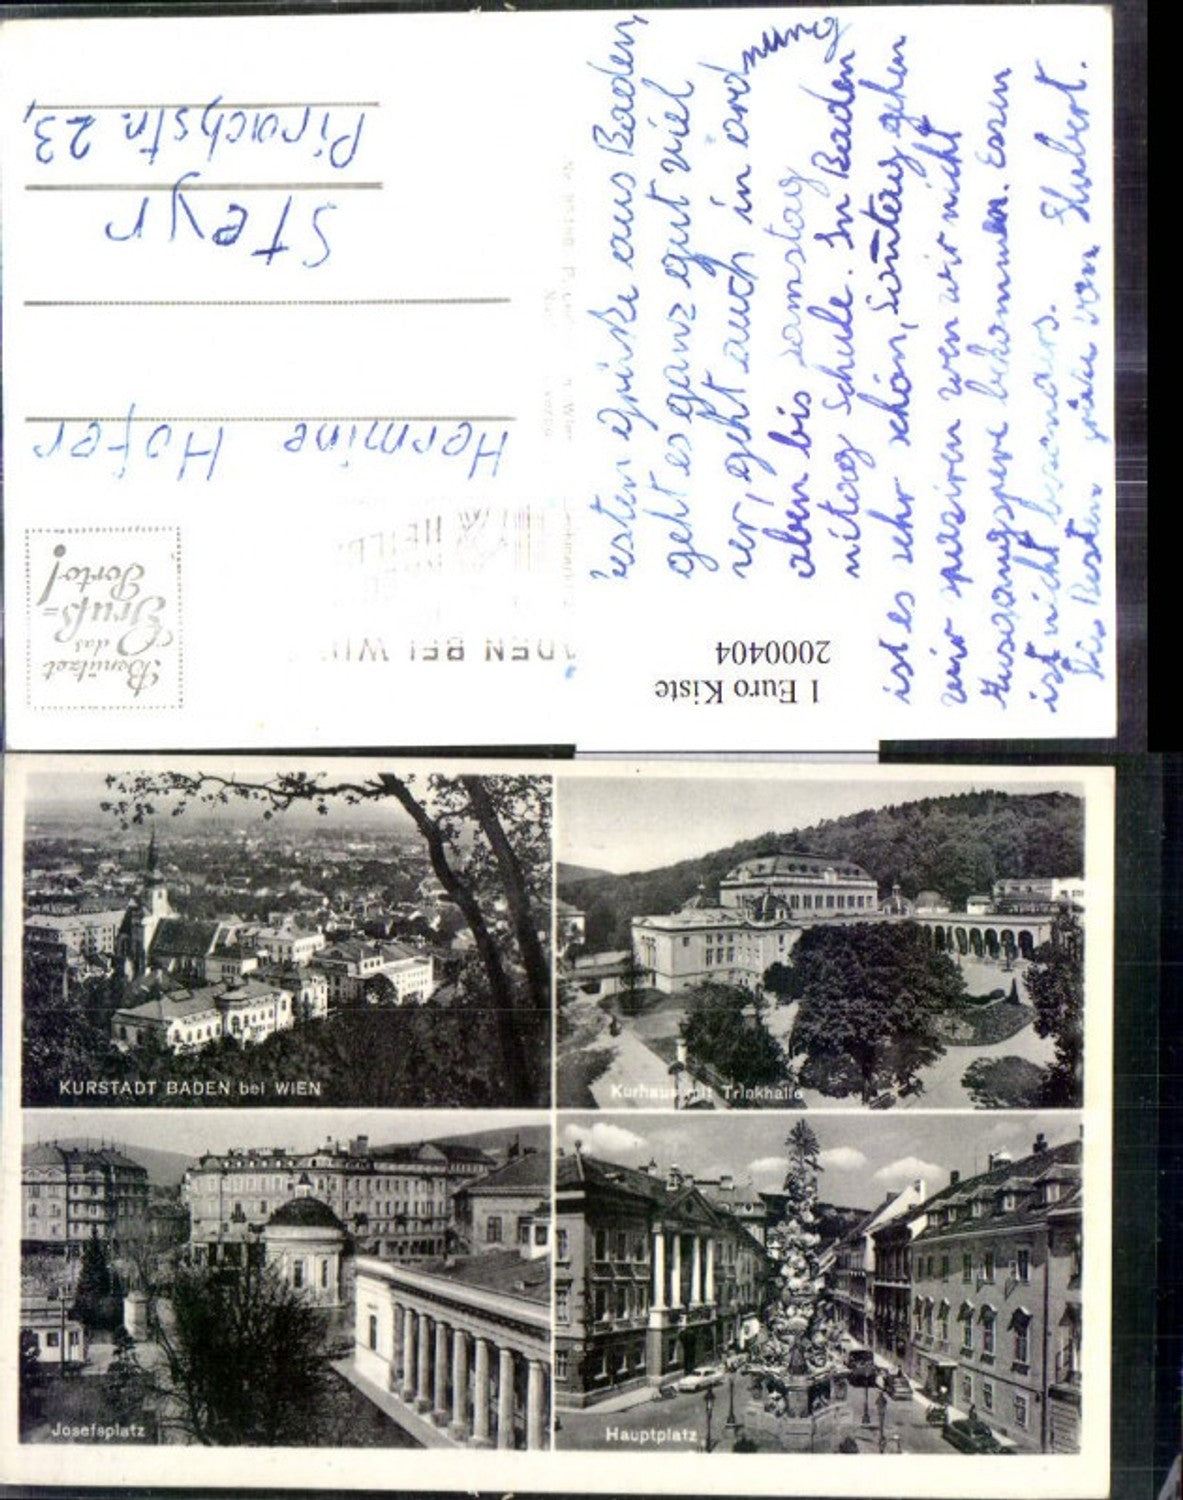 Besten Grüße aus Baden,
geht es ganz gut viel
rer, geht auch in ordnung
aben bis samstag
mitag Schule. In Baden
ist es sehr schön, Sontag gehen
wir spaziren wen wir nicht
Ausgangspere bekommen. Essen
ist nicht besonders.
Die Besten grüße von Hubert.
Hermine Hofer
Steyr
Pirachstr. 23,
Benützet
das
Gruß-
Porto!
BADEN BEI WIEN
1 Euro Kiste
2000404
KURSTADT BADEN bei WIEN
Kurhaus mit Trinkhalle
Josefsplatz
Hauptplatz